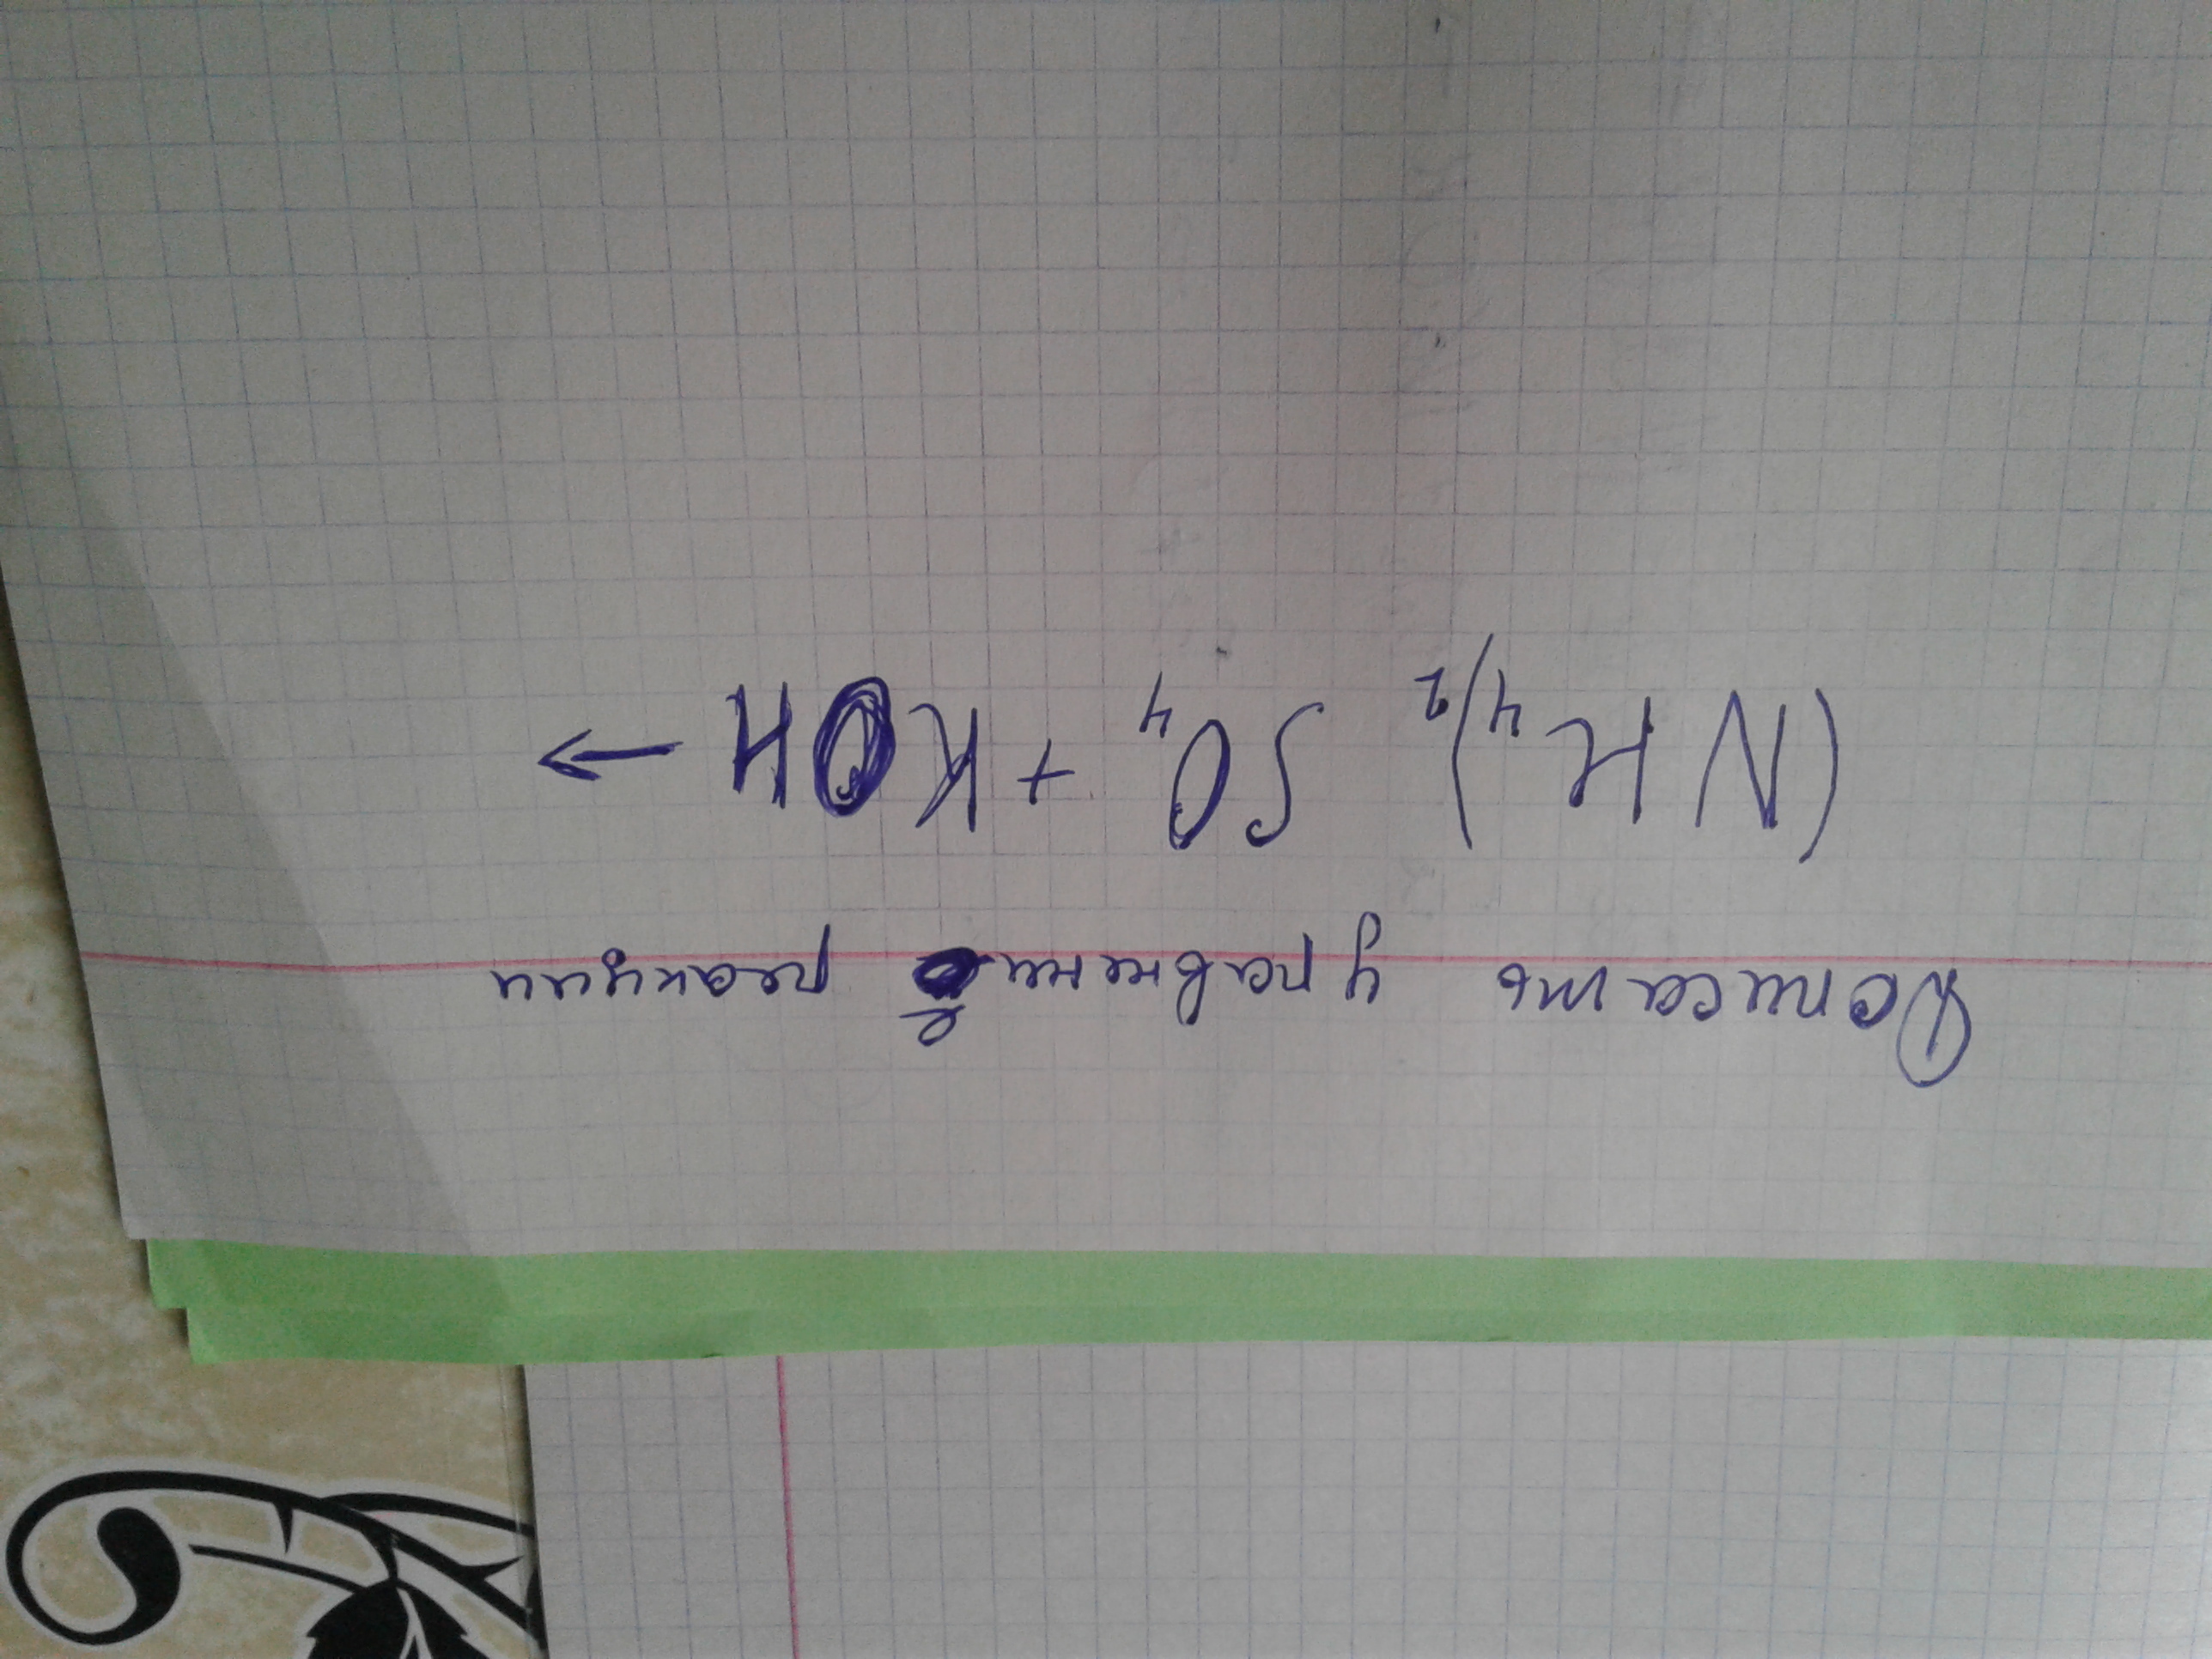 Дописать уравнений реакции
(NH₄)₂ SO₄ + KOH →